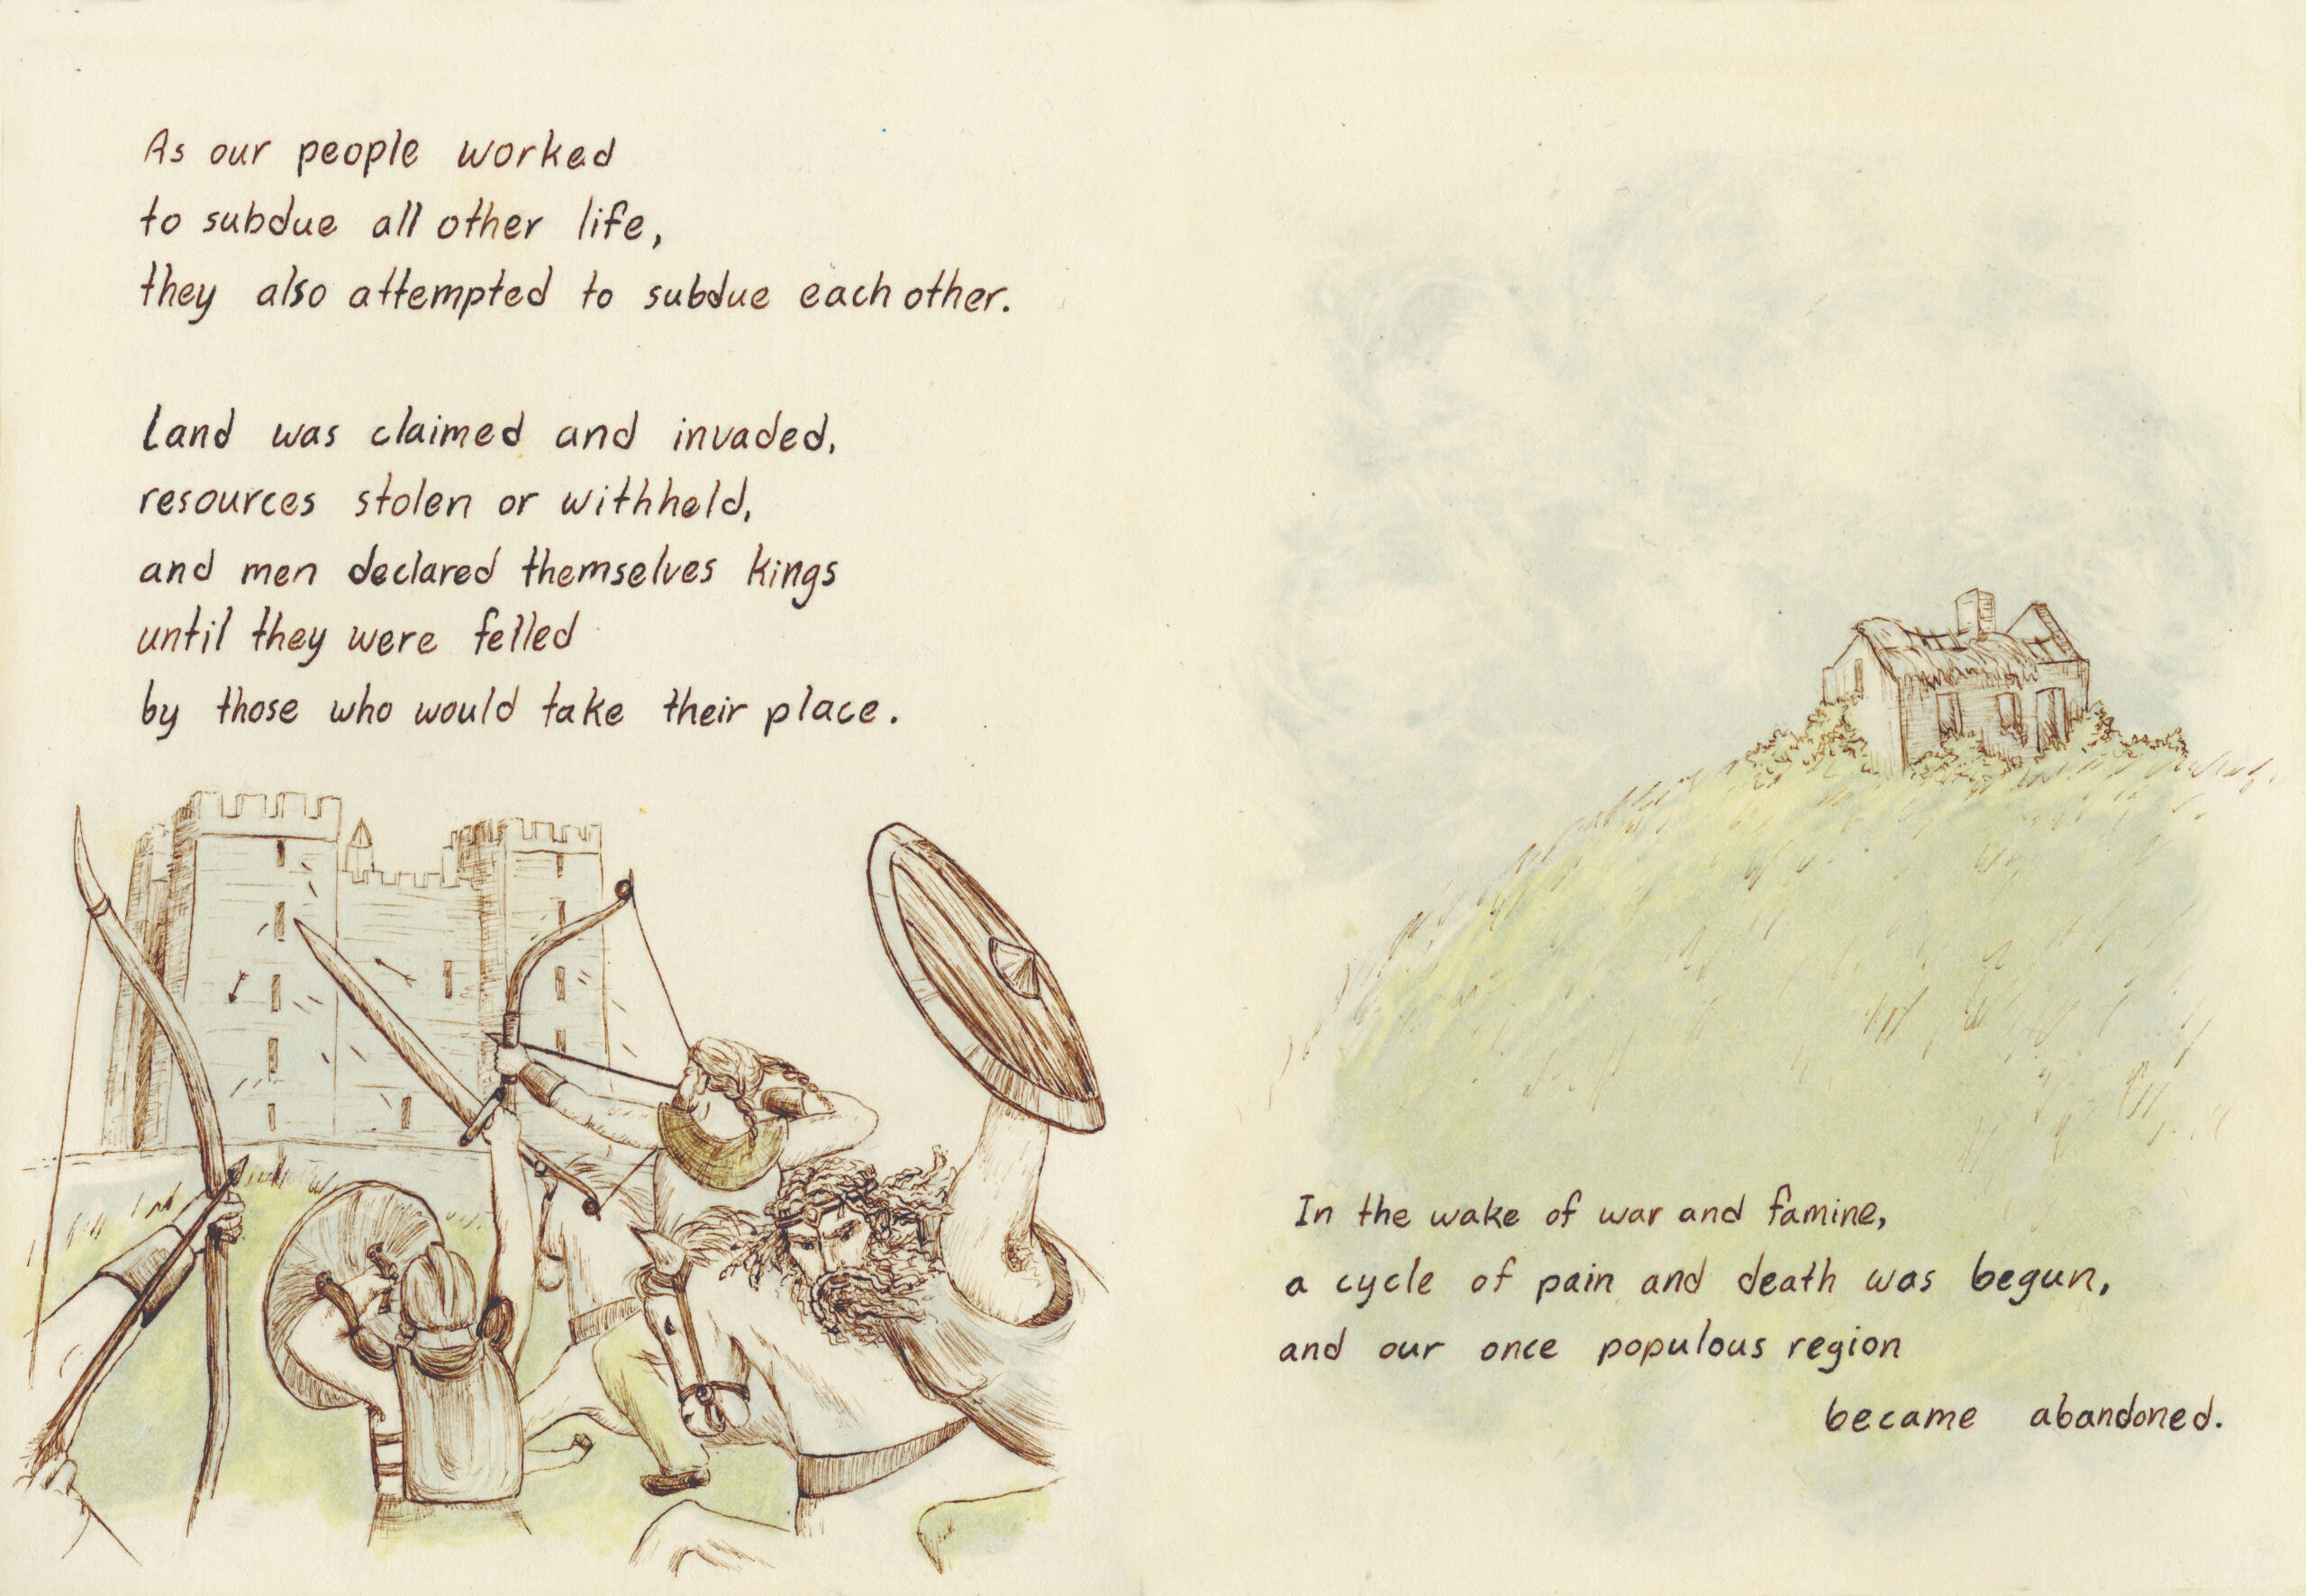 As our people worked
to subdue all other life,
they also attempted to subdue each other.
Land was claimed and invaded,
resources stolen or withheld,
and men declared themselves kings
until they were felled
by those who would take their place.
In the wake of war and famine,
a cycle of pain and death was begun,
and our once populous region
became abandoned.